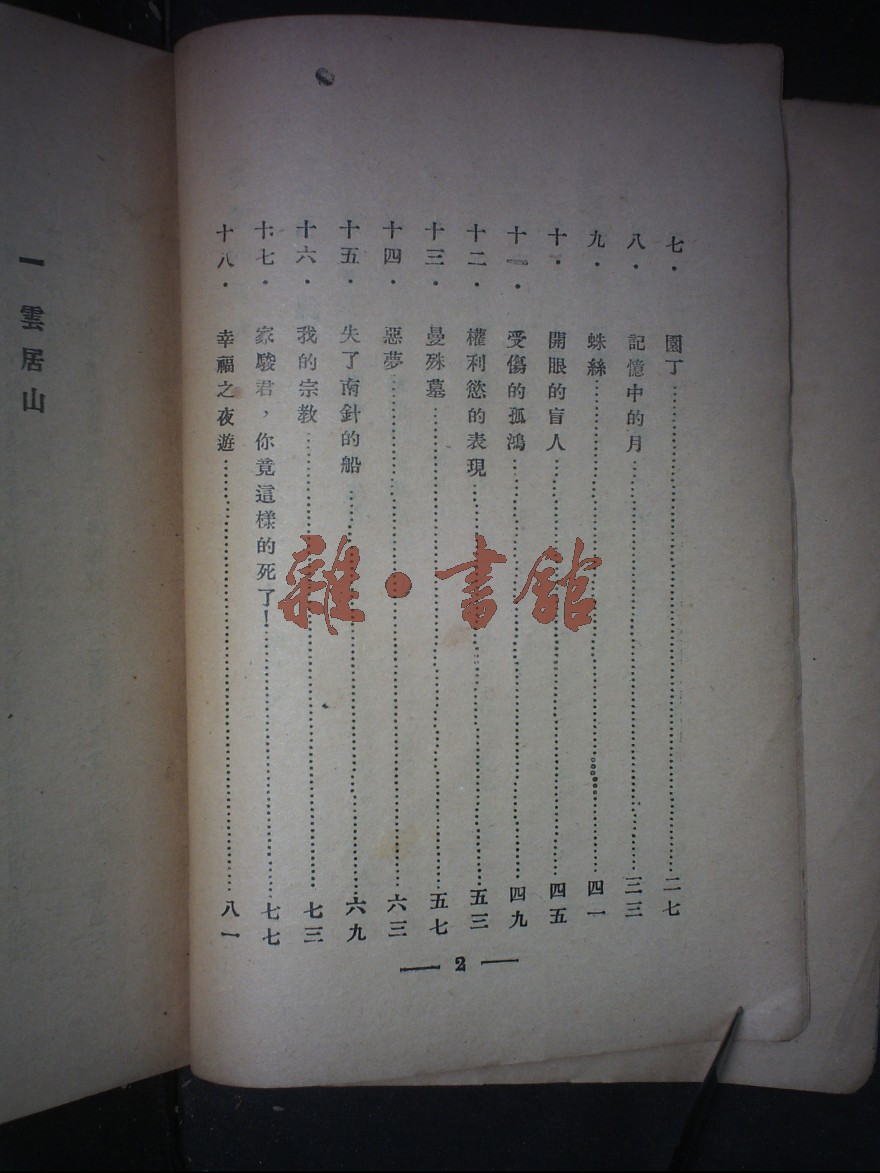 七. 園丁 二七
八. 記憶中的月 三三
九. 蛛絲 四一
十. 開眼的盲人 四五
十一. 受傷的孤鴻 四九
十二. 權利慾的表現 五三
十三. 曼殊墓 五七
十四. 惡夢 六三
十五. 失了南針的船 六九
十六. 我的宗教 七三
十七. 家駿君，你竟這樣的死了！ 七七
十八. 幸福之夜遊 八一
2
一 雲居山
雜·書館